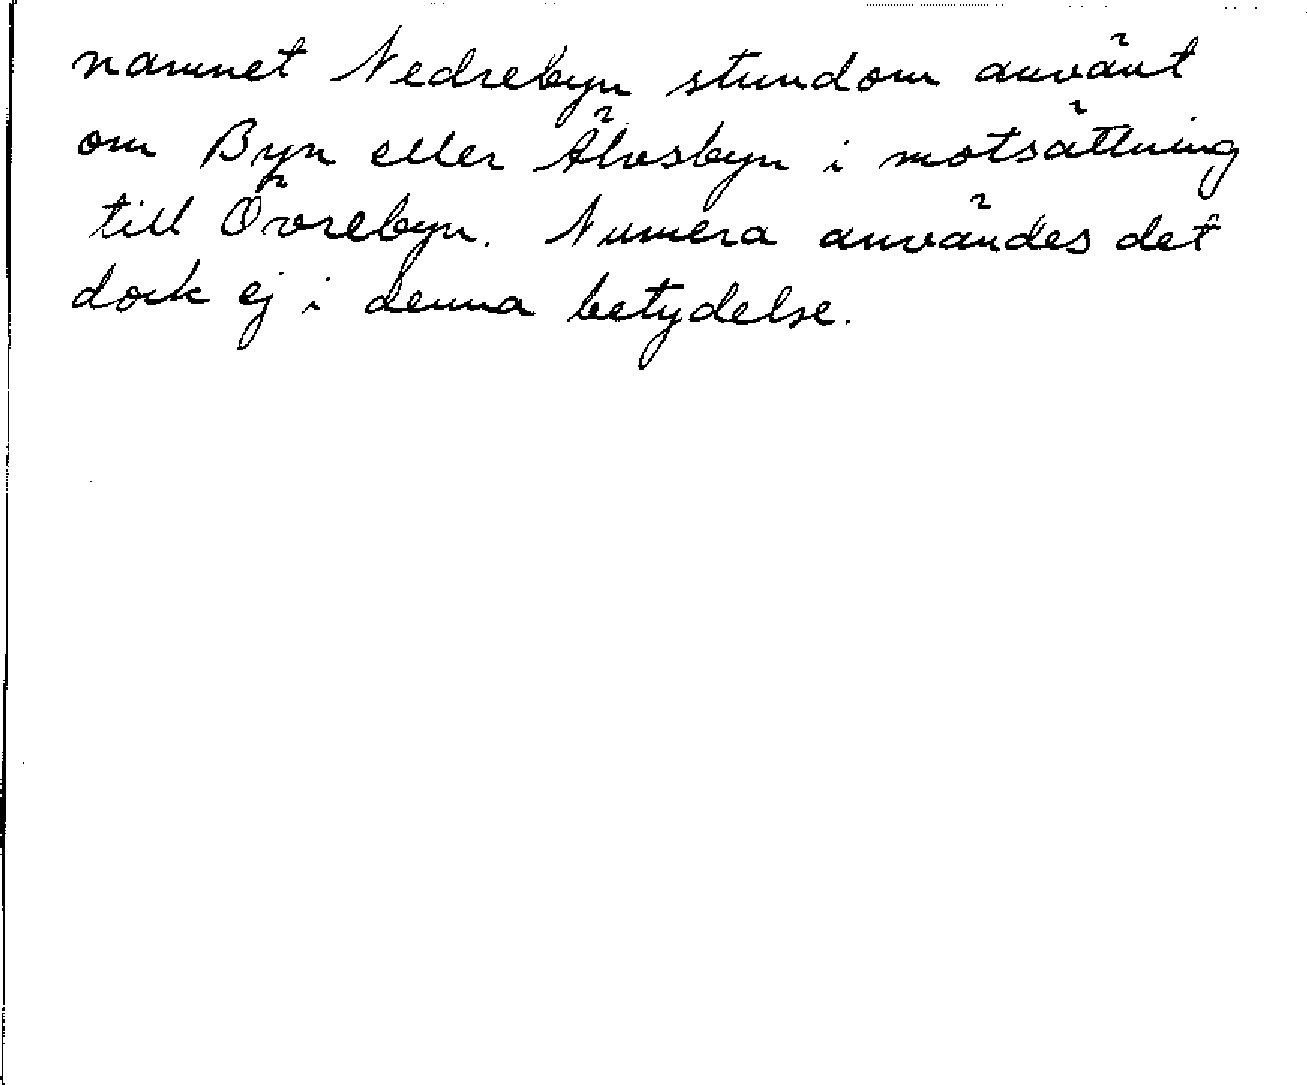 namnet Nedrebyn stundom använt
om Byn eller Älvsbyn i motsättning
till Övrebyn. Numera användes det
dock ej i denna betydelse.